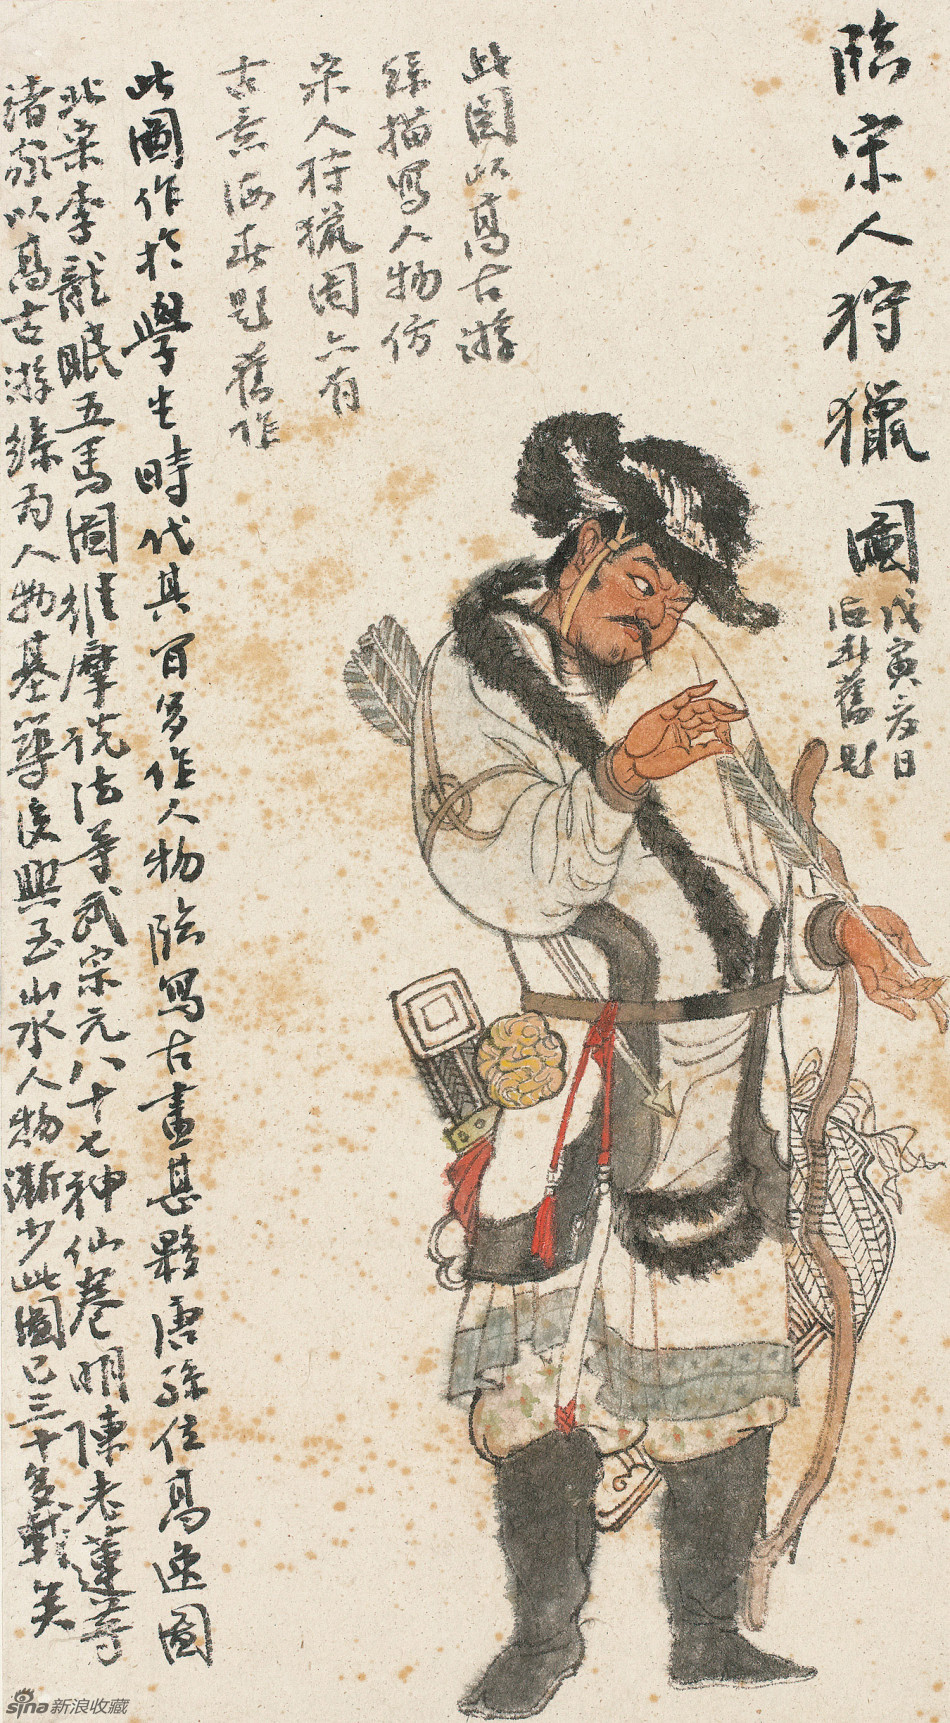 臨宋人狩獵圖
戊寅夏日
舊題
此圖以高古游
絲描寫人物仿
宋人狩獵圖亦有
古意題舊作
此圖作於學生時代其多作人物臨寫古畫甚夥唐孫位高逸圖
北宋李龍眠五馬圖維摩說法等武宗元八十七神仙卷明陳老蓮等
諸家以高古游絲為人物基後興至山水人物漸少此圖已三十多載矣
sina新浪收藏